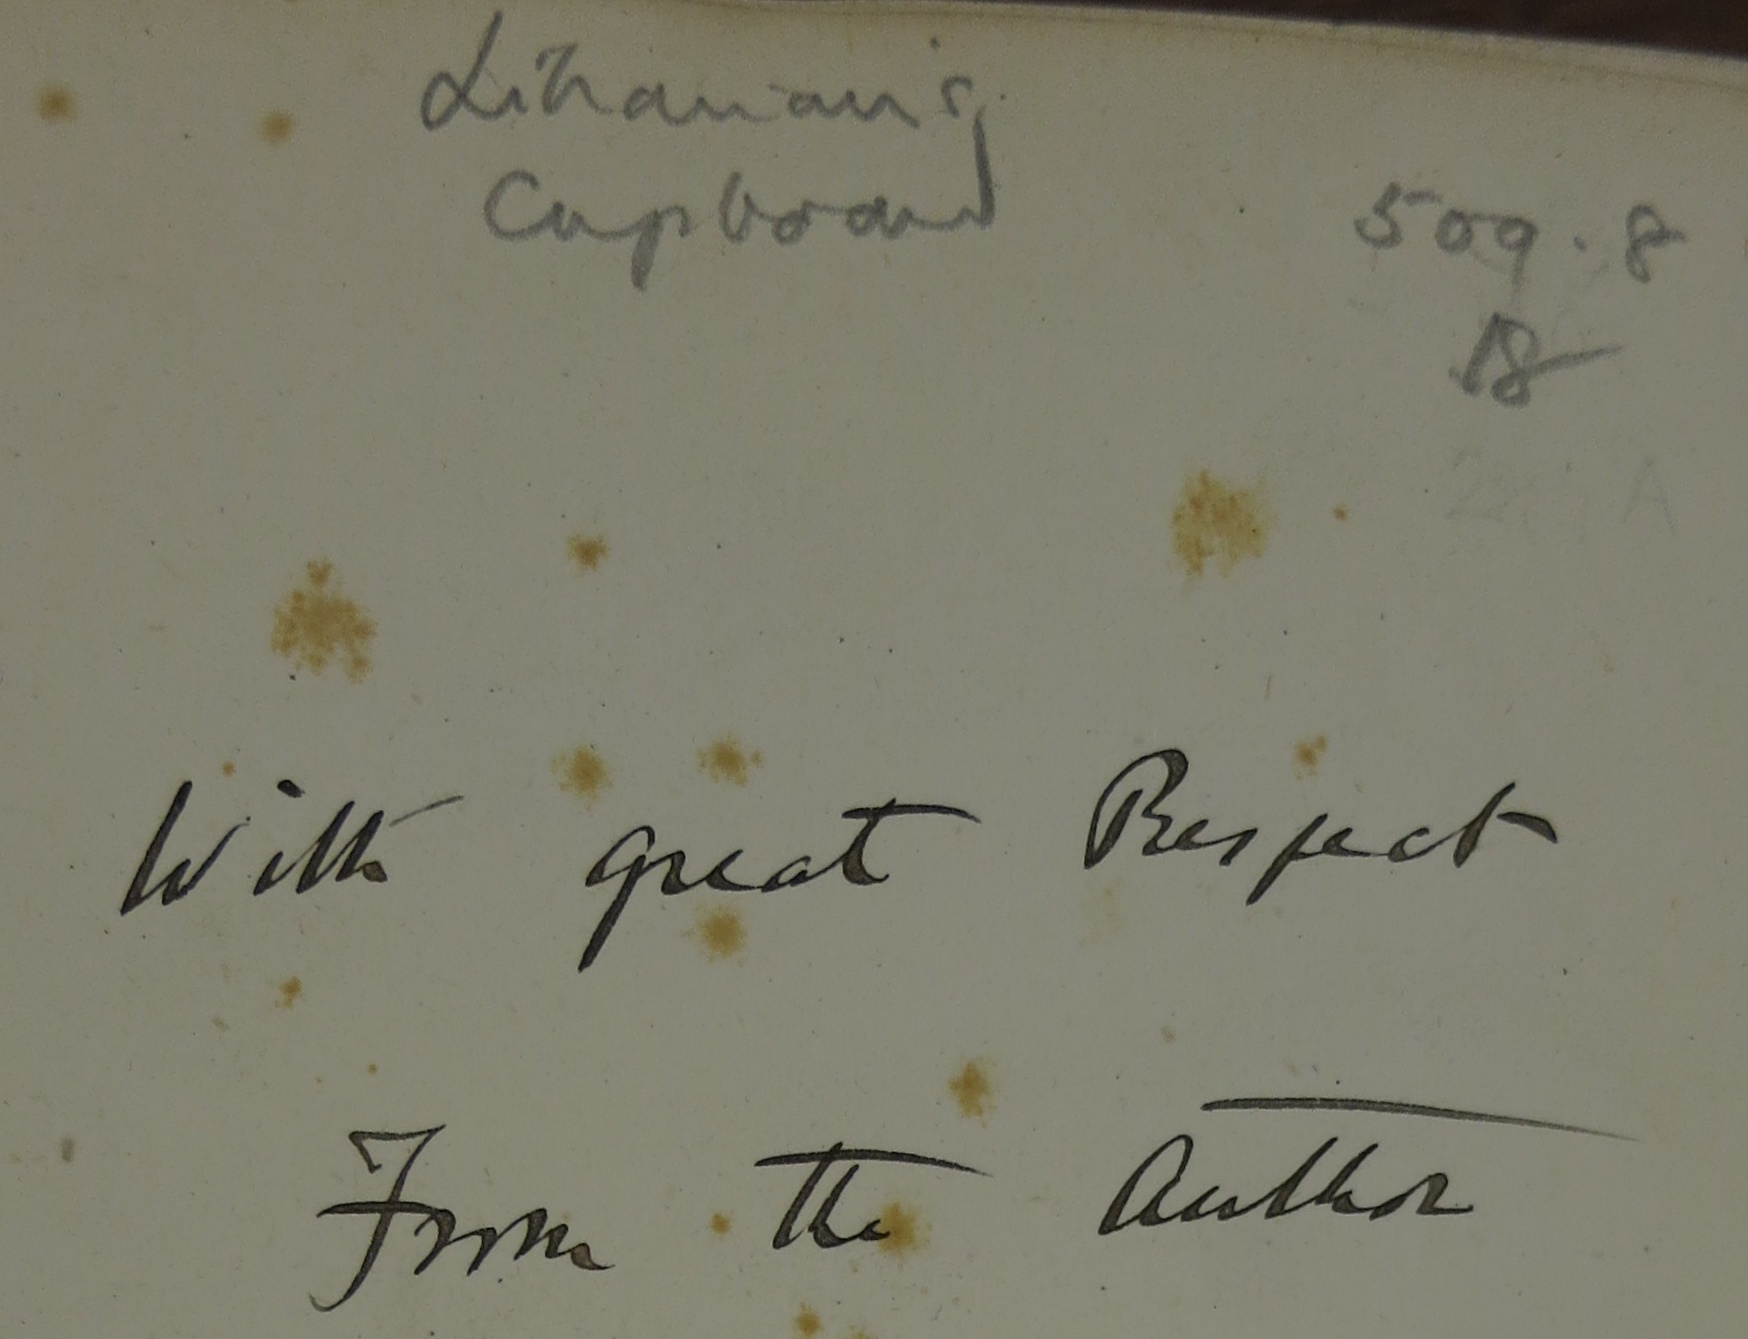 Librarian's
Cupboard
509.8
18
With great Respect
From the Author